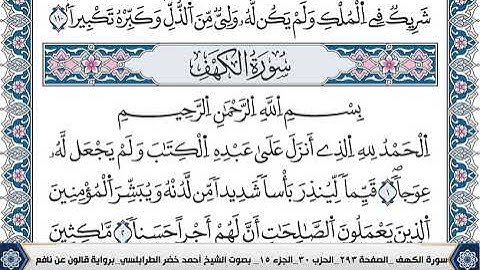 شَرِيكٌ فِي اِ۬لْمُلْكِ وَلَمْ يَكُن لَّهُۥ وَلِيٌّ مِّنَ اَ۬لذُّلِّ وَكَبِّرْهُ تَكْبِيراًۖ
سُورَةُ الْكَهْفِ
بِسْمِ اِ۬للَّهِ اِ۬لرَّحْمَٰنِ اِ۬لرَّحِيمِ
اَ۬لْحَمْدُ لِلهِ اِ۬لذِے أَنزَلَ عَلَىٰ عَبْدِهِ اِ۬لْكِتَٰبَ وَلَمْ يَجْعَل لَّهُۥ
عِوَجاًۖ ١ قَيِّماً لِّيُنذِرَ بَأْساً شَدِيداً مِّن لَّدُنْهُ وَيُبَشِّرَ اَ۬لْمُؤْمِنِينَ
اَ۬لذِينَ يَعْمَلُونَ اَ۬لصَّٰلِحَٰتِ أَنَّ لَهُمْ أَجْراً حَسَناً ٢ مَّٰكِثِينَ
سورة الكهف _الصفحة ٢٩٣_ الحزب ٣٠_ الجزء ١٥_ بصوت الشيخ أحمد خضر الطرابلسي_ برواية قالون عن نافع